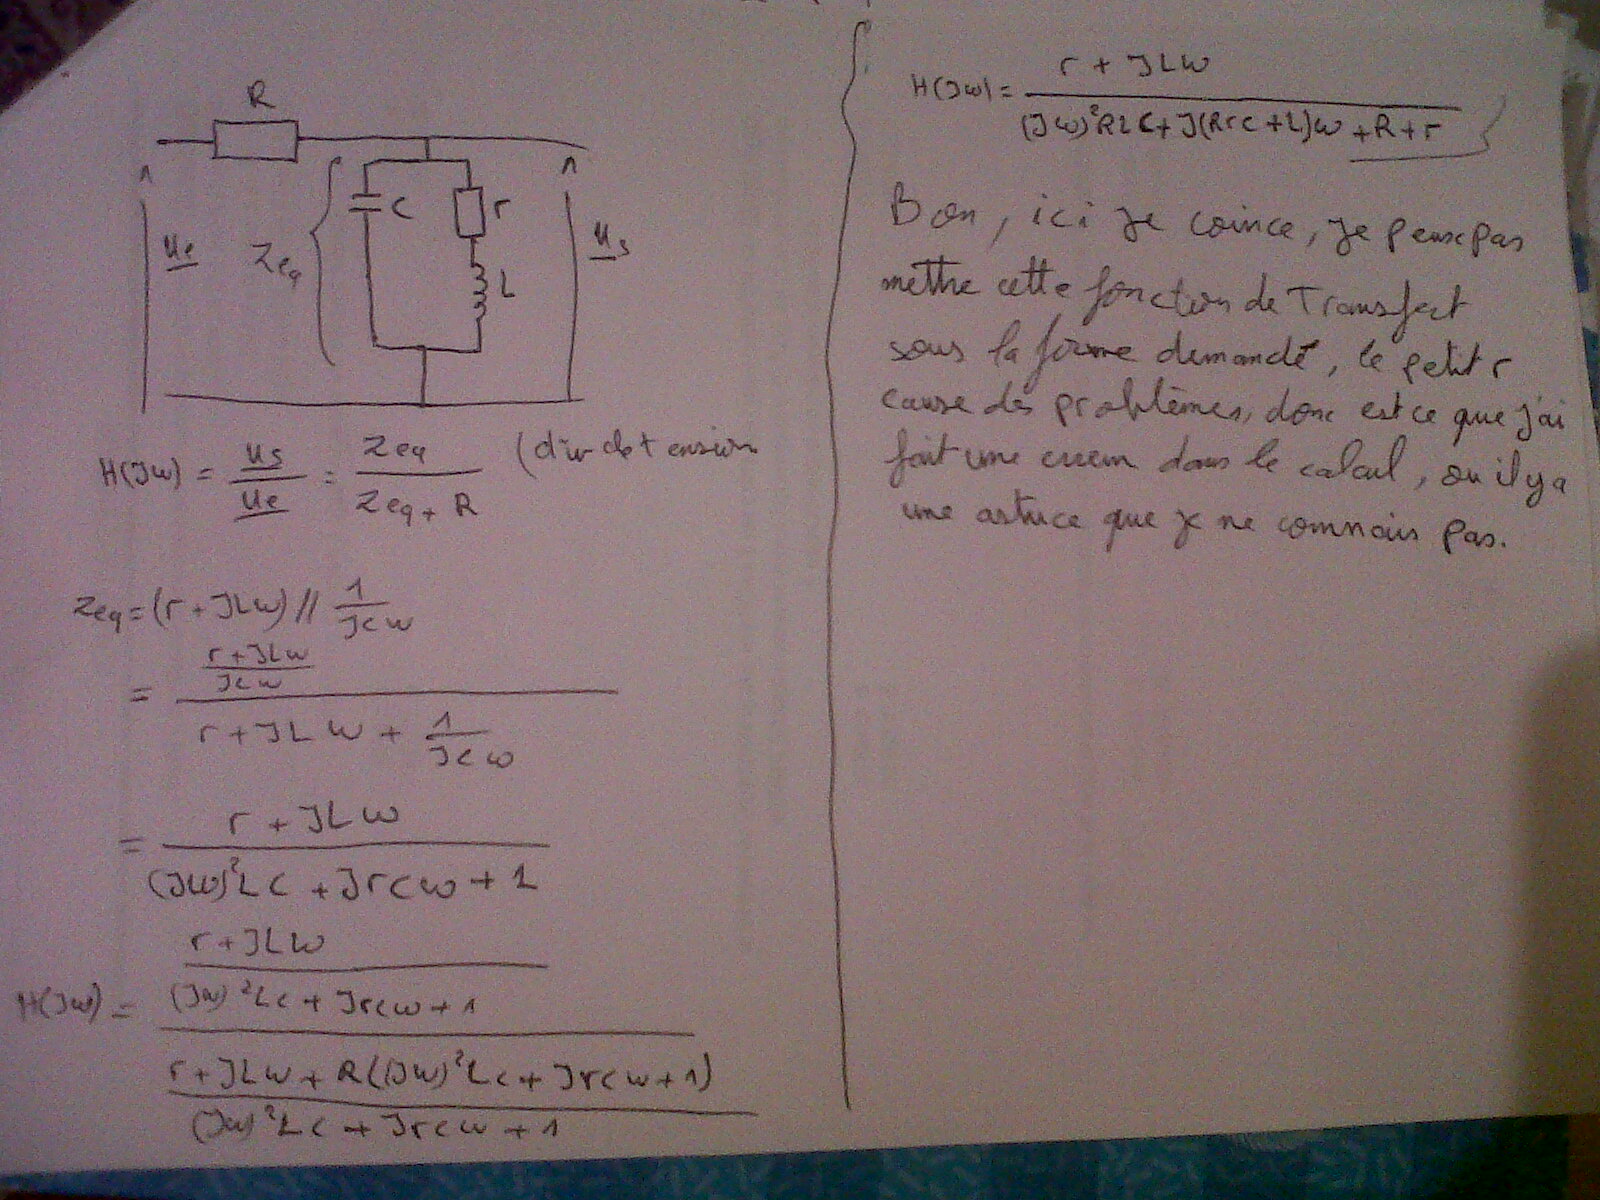 R
C
r
L
Zeq
ue
us
H(Jω) = us/ue = Zeq/(Zeq + R) (div de tension
Zeq = (r + JLω) // 1/JCω
= ((r + JLω)/JCω) / (r + JLω + 1/JCω)
= (r + JLω) / ((Jω)²LC + JrCω + 1)
H(Jω) = ((r + JLω)/((Jω)²LC + JrCω + 1)) / ((r + JLω + R((Jω)²LC + JrCω + 1))/((Jω)²LC + JrCω + 1))
H(Jω) = (r + JLω) / ((Jω)²RLC + J(RrC + L)ω + R + r)
Bon, ici je coince, je peux pas
mettre cette fonction de Transfert
sous la forme demandé, le petit r
cause des problèmes, donc est ce que j'ai
fait une erreur dans le calcul, ou il y a
une astuce que je ne connais pas.